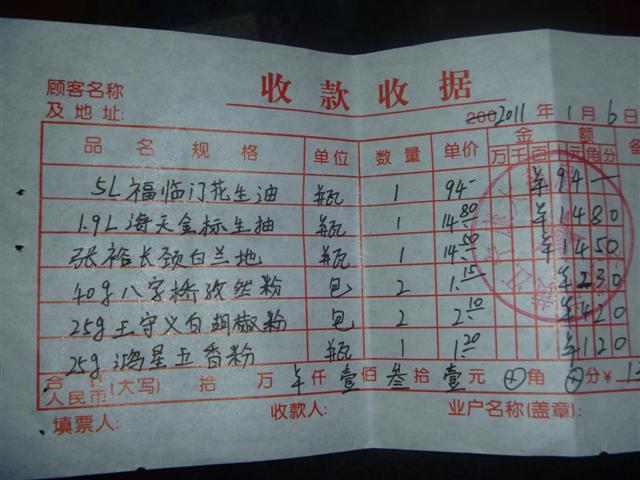 收款收据
顾客名称
及地址:
2002011年1月6日
品名规格 单位 数量 单价 金额
万千百十元角分
5L福临门花生油 瓶 1 94- ¥94—
1.9L海天金标生抽 瓶 1 14.80 ¥1480
张裕长颈白兰地 瓶 1 14.50 ¥1450
40g八字桥孜然粉 包 2 1.15 ¥230
25g王守义白胡椒粉 包 2 2.10 ¥420
25g鸿星五香粉 瓶 1 1.20 ¥120
合计
人民币(大写) 拾万¥仟壹佰叁拾壹元⊕角⊕分¥
填票人: 收款人: 业户名称(盖章):